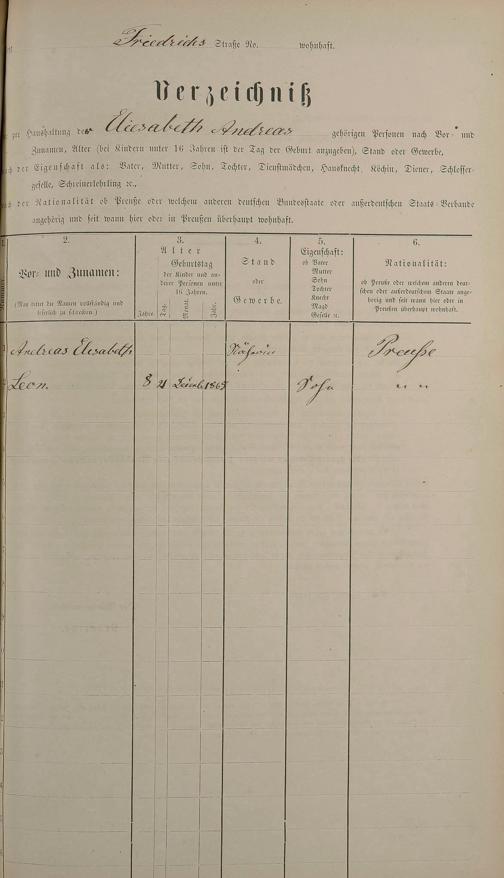 Friedrichs Straße No. wohnhaft.
Verzeichniß
zur Haushaltung der Eliesabeth Andreas gehörigen Personen nach Vor- und
Zunamen, Alter (bei Kindern unter 16 Jahren ist der Tag der Geburt anzugeben), Stand oder Gewerbe,
nach der Eigenschaft als: Vater, Mutter, Sohn, Tochter, Dienstmädchen, Hausknecht, Köchin, Diener, Schlosser-
geselle, Schreinerlehrling ꝛc.,
nach der Nationalität ob Preuße oder welchem anderen deutschen Bundesstaate oder außerdeutschen Staats-Verbande
angehörig und seit wann hier oder in Preußen überhaupt wohnhaft.
2. 3. 4. 5. 6.
Vor- und Zunamen:
(Man bittet die Namen vollständig und
leserlich zu schreiben.)
Alter
Geburtstag
der Kinder und an-
derer Personen unter
16 Jahren.
Jahre. Tag. Monat. Jahr.
Stand
oder
Gewerbe.
Eigenschaft:
ob Vater
Mutter
Sohn
Tochter
Knecht
Magd
Geselle ꝛc.
Nationalität:
ob Preuße oder welchem andern deut-
schen oder außerdeutschen Staat ange-
hörig und seit wann hier oder in
Preußen überhaupt wohnhaft.
Andreas Elisabeth Näherin Preuße
Leon. 8 21 1865 Sohn " "